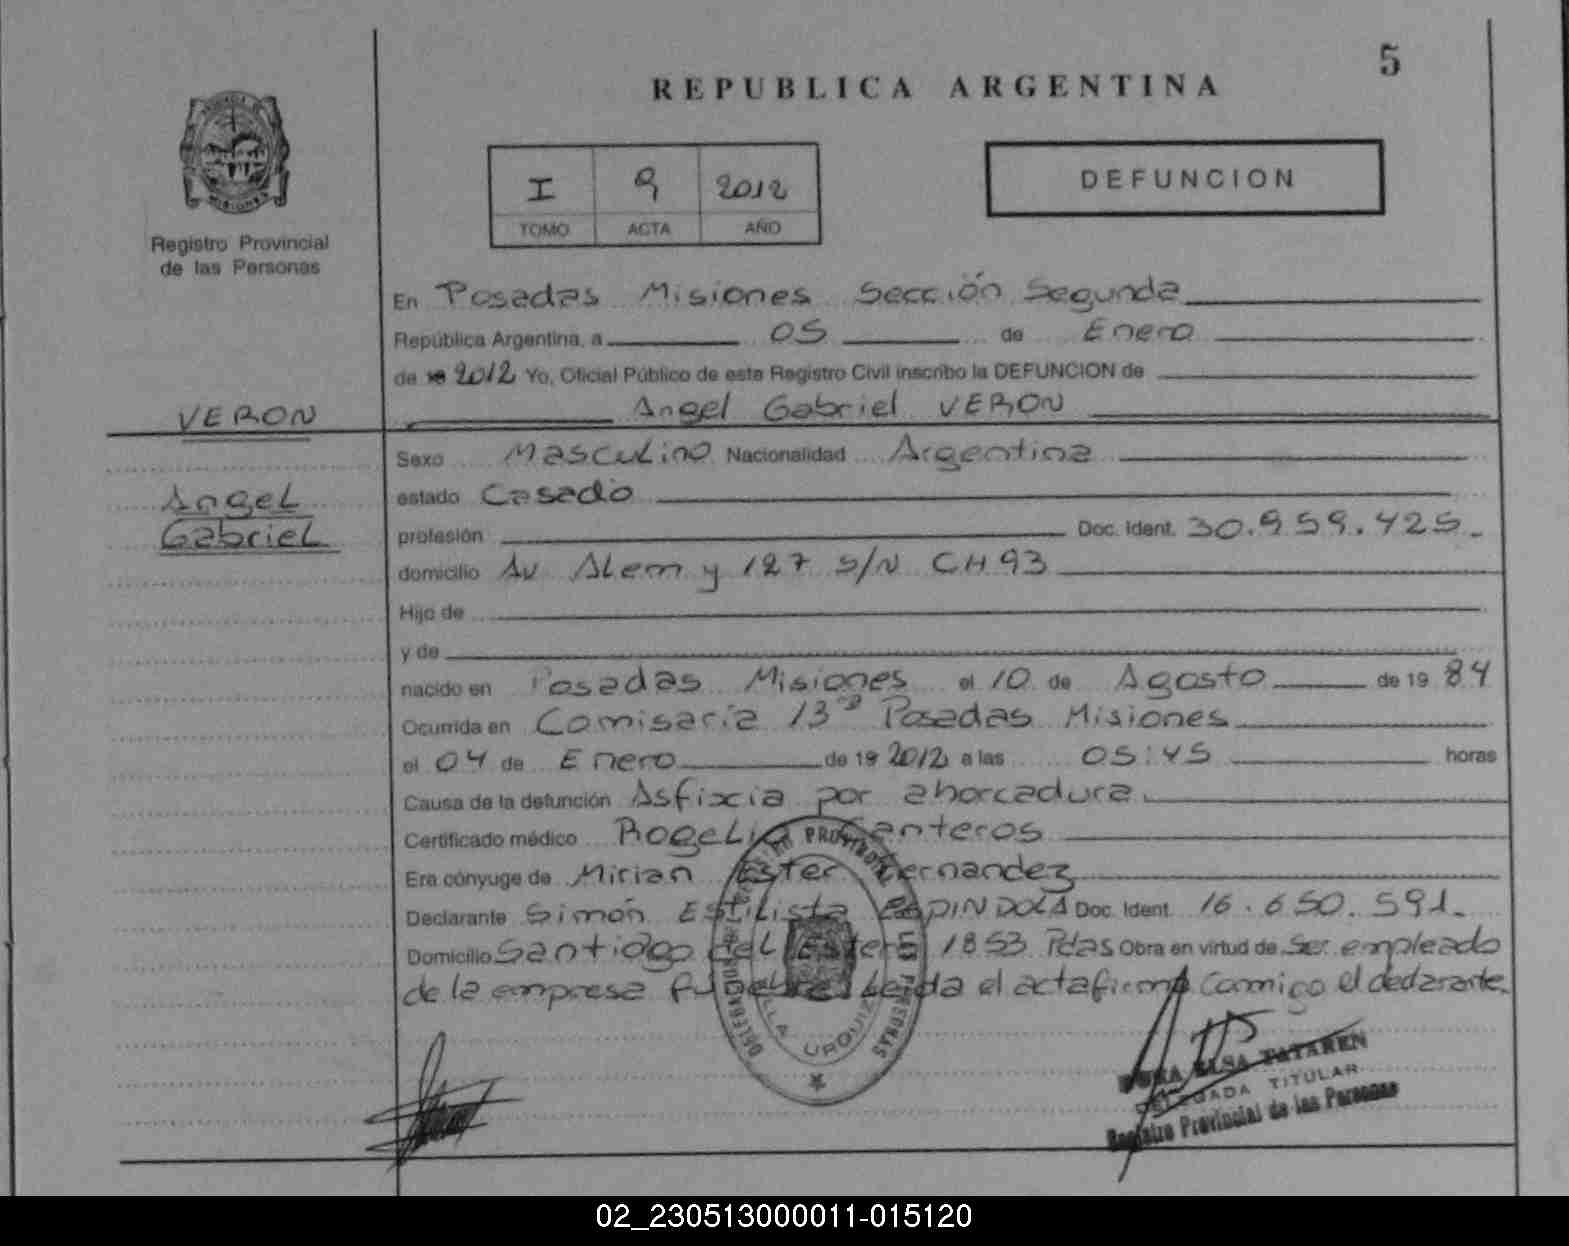 5
REPUBLICA ARGENTINA
PROVINCIA DE
MISIONES
Registro Provincial
de las Personas
I 9 2012
TOMO ACTA AÑO
DEFUNCION
En Posadas Misiones Sección Segunda
República Argentina, a 05 de Enero
de 2012 Yo, Oficial Público de este Registro Civil inscribo la DEFUNCION de
VERON
Angel Gabriel VERON
Sexo Masculino Nacionalidad Argentina
Angel
Gabriel
estado Casado
profesión Doc. Ident. 30.959.425.
domicilio Av Alem y 127 S/N CH 93
Hijo de
y de
nacido en Posadas Misiones el 10 de Agosto de 19 84
Ocurrida en Comisaría 13ª Posadas Misiones
el 04 de Enero de 19 2012 a las 05:45 horas
Causa de la defunción Asfixia por ahorcadura
Certificado médico Rogelio Canteros
Era cónyuge de Mirian Ester Fernandez
Declarante Simón Estilista ESPINDOLA Doc. Ident. 16.650.591.
Domicilio Santiago del Estero 1853 Pdas Obra en virtud de Ser empleado
de la empresa funebre Leida el acta firma Conmigo el declarante.
VILLA URQUIZA
ELSA TATAREN
DELEGADA TITULAR
Registro Provincial de las Personas
02_230513000011-015120